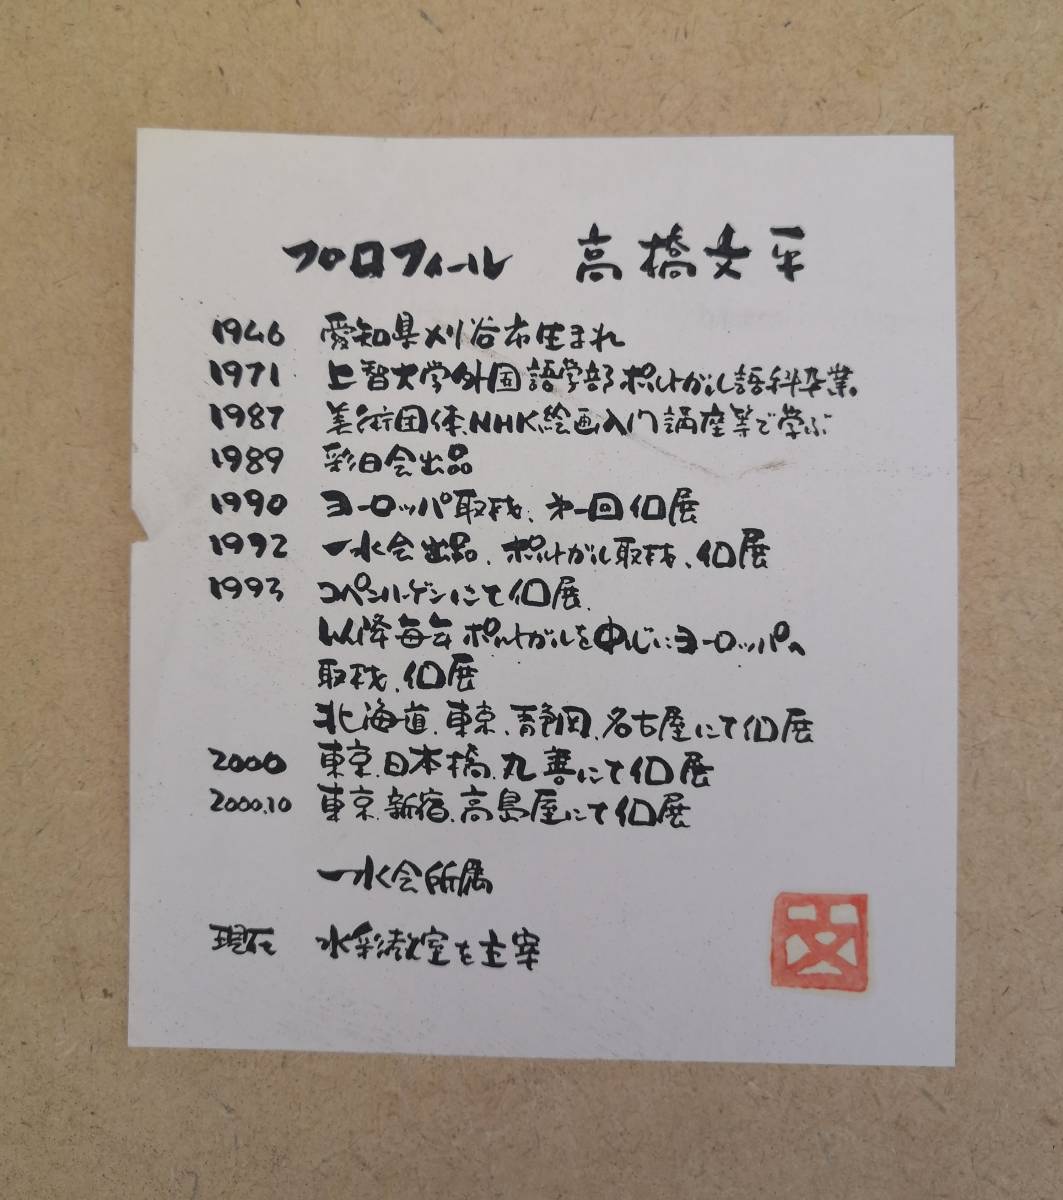 プロフィール 高橋文平
1946 愛知県刈谷市生まれ
1971 上智大学外国語学部ポルトガル語科卒業。
1987 美術団体、NHK絵画入門講座等で学ぶ
1989 彩日会出品
1990 ヨーロッパ取材、才一回個展
1992 一水会出品、ポルトガル取材、個展
1993 コペンハーゲンにて個展、
以降毎年ポルトガルを中心にヨーロッパへ
取材、個展
北海道、東京、静岡、名古屋にて個展
2000 東京、日本橋、丸善にて個展
2000.10 東京、新宿、高島屋にて個展
一水会所属
現在 水彩教室を主宰
文